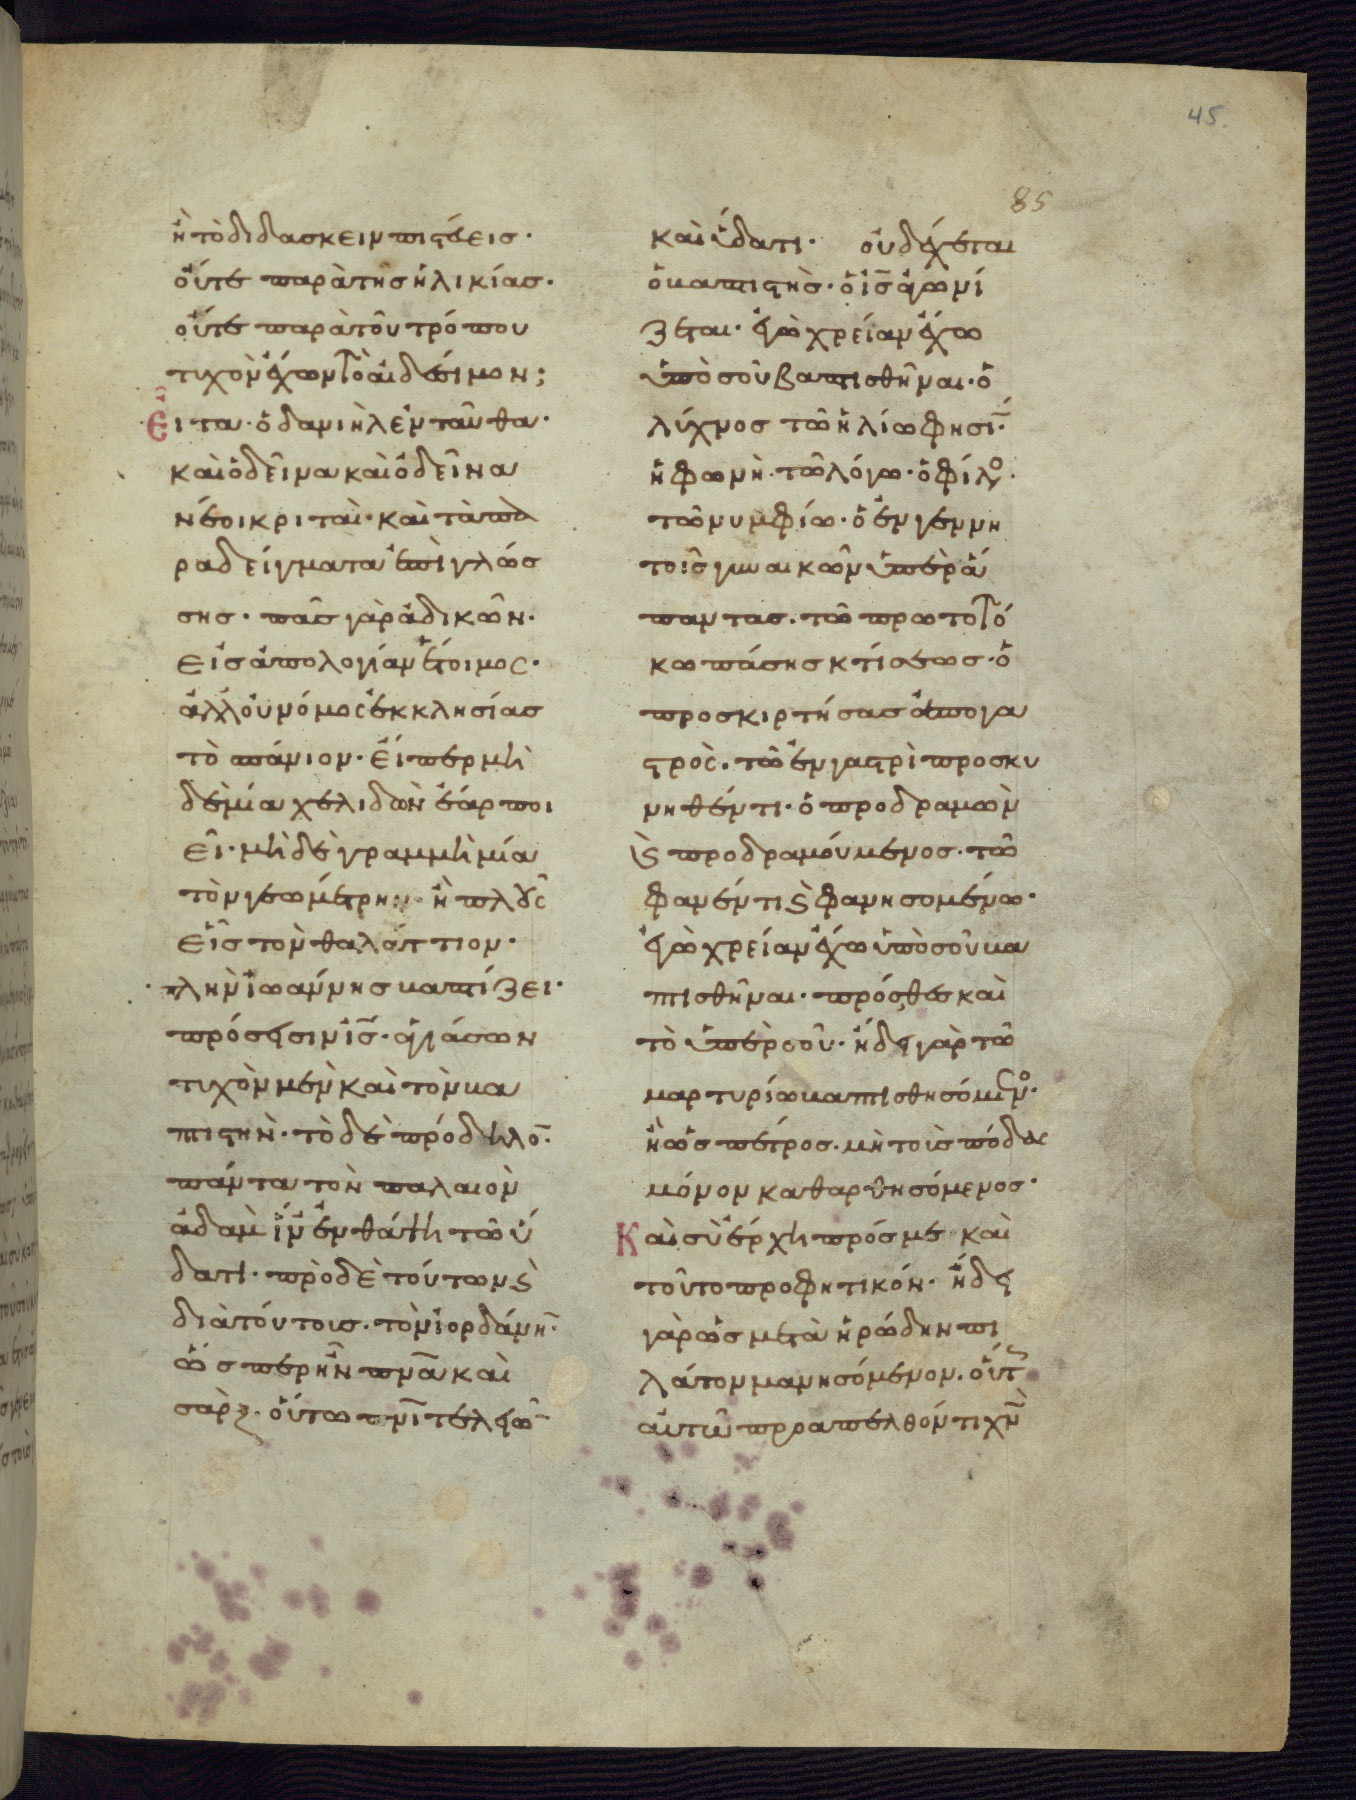 45.
85
ἢ τὸ διδάσκειν πιστεύεις·
οὔτε παρὰ τῆς ἡλικίας·
οὔτε παρὰ τοῦ τρόπου
τυχὸν ἔχων τὸ αἰδέσιμον;
Εἶτα· ὁ δανιὴλ ἐνταῦθα·
καὶ ὁ δεῖνα καὶ ὁ δεῖνα
νέοι κριταὶ· καὶ τὰ πα
ραδείγματα ἐπὶ γλώσ
σης· πᾶς γὰρ ἀδικῶν·
εἰς ἀπολογίαν ἕτοιμος·
ἀλλ' οὐ νόμος ἐκκλησίας
τὸ σπάνιον· εἴπερ μὴ
δὲ μία χελιδὼν ἔαρ ποι
εῖ· μὴ δὲ γραμμὴ μία
τὸν γεωμέτρην· ἢ πλοῦς
εἷς τὸν θαλάττιον·
πλὴν ἰωάννης βαπτίζει·
πρόσεισιν ἰς̅· ἁγιάσων
τυχὸν μὲν καὶ τὸν βα
πτιστὴν· τὸ δὲ πρόδηλο̅·
πάντα τὸν παλαιὸν
ἀδαμ ἵν' ἐνθάψη τῶ ὕ
δατι· πρὸ δὲ τούτων ϗ
διὰ τούτοις· τὸν ἰορδάνη̅·
ὥσπερ ἦν πνα̅ καὶ
σὰρξ· οὕτω πνι̅ τελειῶ̅
καὶ ὕδατι· οὐ δέχεται
ὁ βαπτιστὴς· ὁ ις̅ ἀγωνί
ζεται· ἐγὼ χρείαν ἔχω
ὑπὸ σοῦ βαπτισθῆναι· ὁ
λύχνος τῶ ἡλίω φησὶ̅·
ἡ φωνὴ τῶ λόγω· ὁ φίλο·
τῶ νυμφίω· ὁ ἐν γεννη
τοῖς γυναικῶν ὑπὲρ ἅ
παντας· τῶ πρωτοτό
κω πάσης κτίσεως· ὁ
προσκιρτήσας ἀπὸ γα
στρὸς· τῶ ἐν γαστρὶ προσκυ
νηθέντι· ὁ προδραμὼν
ϗ προδραμούμενος· τῶ
φανέντι ϗ φανησομένω·
ἐγὼ χρείαν ἔχω ὑπὸ σοῦ βα
πτισθῆναι· πρόσθες καὶ
τὸ ὑπὲρ σοῦ· ἤδει γὰρ τῶ
μαρτυρίω βαπτισθησόμενο·
ἢ ὡς πέτρος· μὴ τοὺς πόδας
μόνον καθαρθησόμενος·
Καὶ σὺ ἔρχη πρός με καὶ
τοῦτο προφητικόν· ἤδει
γὰρ ὡς μετὰ ἡρώδην πι
λάτον μανησόμενον· οὕτ
αὐτῶ προαπελθόντι χν̅